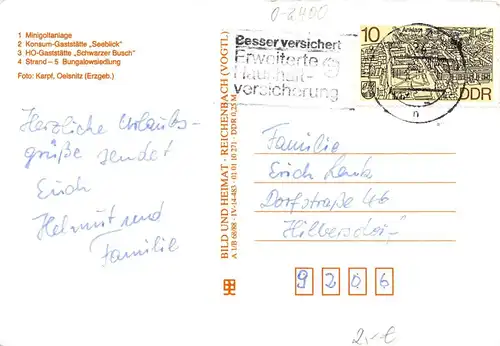 1 Minigolfanlage
2 Konsum-Gaststätte „Seeblick“
3 HO-Gaststätte „Schwarzer Busch“
4 Strand – 5 Bungalowsiedlung
Foto: Karpf, Oelsnitz (Erzgeb.)
Herzliche Urlaubs-
grüße sendet
Euch
Helmut und
Familie
BILD UND HEIMAT · REICHENBACH (VOGTL)
A 1/B 68/88 · IV-14-483 · 01 01 10 271 · DDR 0,25 M
0-2400
Besser versichert
Erweiterte
Haushalt-
versicherung
10
DDR
Familie
Erich Lenk
Dorfstraße 46
Hilbersdorf
9206
2,-€